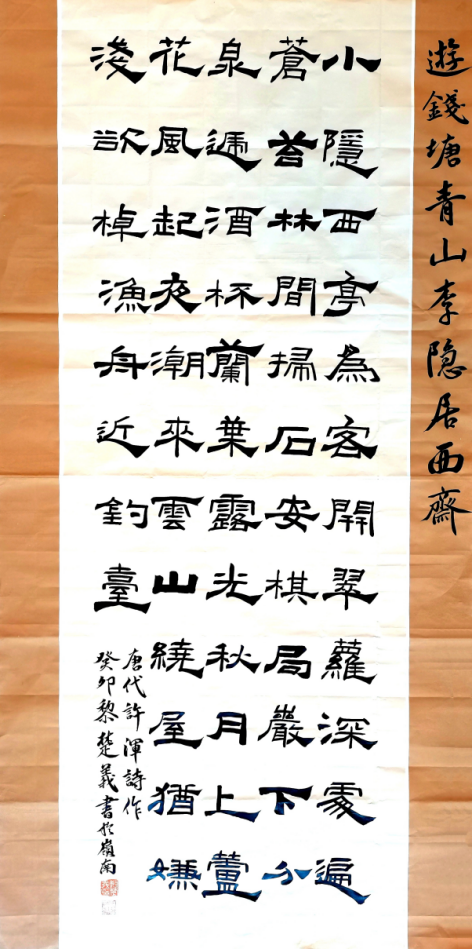 遊錢塘青山李隐居西齋
小隱西亭為客開翠蘿深處遍
蒼苔林間掃石安棋局巖下分
泉遞酒杯蘭葉露光秋月上蘆
花風起夜潮來雲山繞屋猶嫌
淺欲棹漁舟近釣臺
唐代許渾詩作
癸卯黎楚義書於嶺南